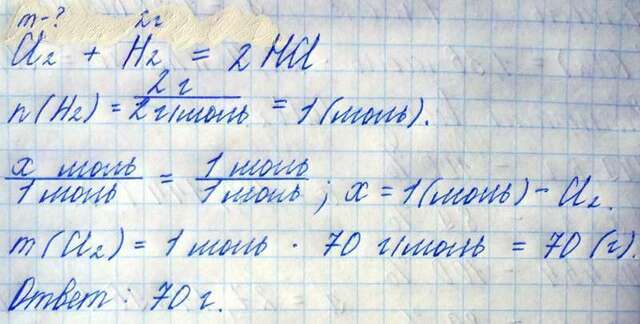 m-? 2г
Cl₂ + H₂ = 2HCl
n(H₂) = 2г / 2г/моль = 1(моль).
x моль / 1моль = 1 моль / 1моль ; x = 1(моль) - Cl₂.
m(Cl₂) = 1 моль · 70 г/моль = 70 (г).
Ответ: 70 г.